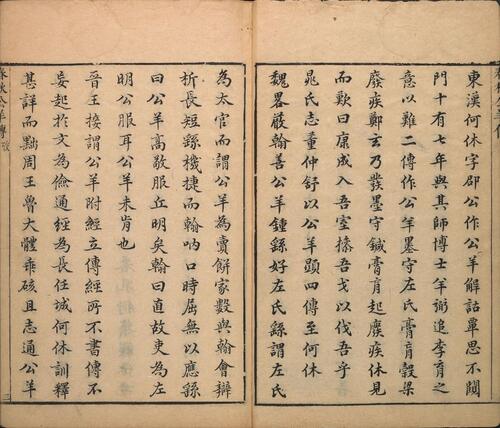 東漢何休字卲公作公羊解詁覃思不闚
門十有七年與其師博士羊弼追李育之
意以難二傳作公羊墨守左氏膏肓穀梁
廢疾鄭玄乃發墨守鍼膏肓起廢疾休見
而歎曰康成入吾室操吾戈以伐吾乎
晁氏志董仲舒以公羊顯四傳至何休
魏畧嚴翰善公羊鍾繇好左氏繇謂左氏
為太官而謂公羊為賣餅家數與翰會辨
析長短繇機捷而翰吶口時屈無以應繇
曰公羊高敬服丘明矣翰曰直故吏為左
明公服耳公羊未肯也
晉王接謂公羊附經立傳經所不書傳不
妄起於文為儉通經為長任城何休訓釋
甚詳而黜周王魯大體乖硋且志通公羊
春秋公羊傳
三